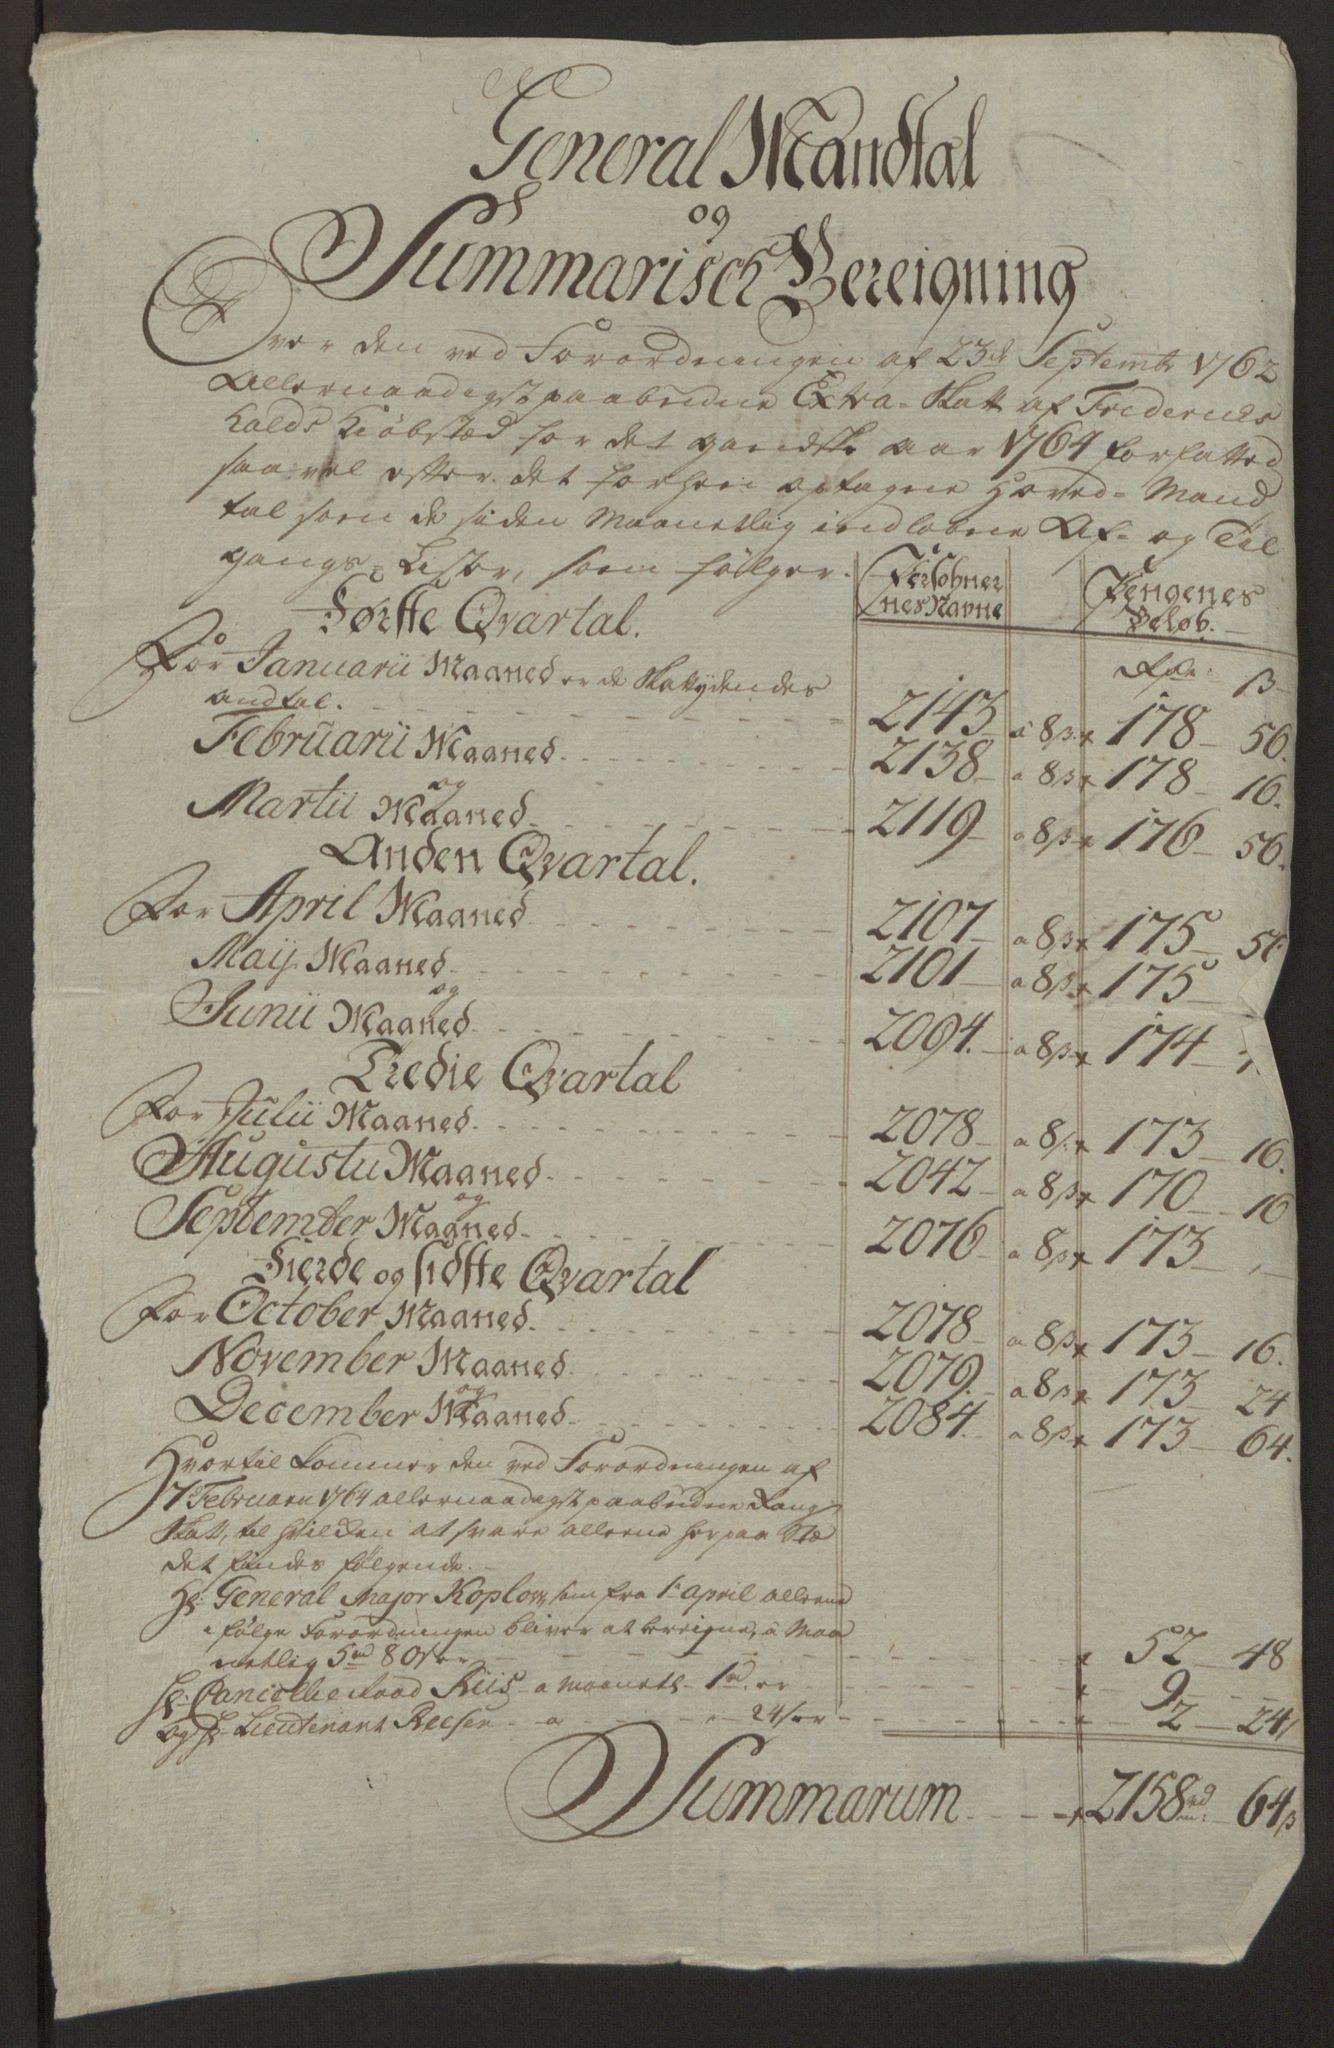 General Mandtal
og
Summarisch Bereigning
Over den ved Forordningen af 23de Septembr 1762
Allernaadigst paabudne Extra-Skatt af Friderichs
halds Kiøbstæd for det gandske aar 1764 forfatted
saa vel efter det forhen optagne Hoved-Mand
tal som de siden Maanetlig indlobne Af- og Til
gangs-Lister, som følger.
Persohner nes Navne
Pengenes Beløb.
Første Qvartal.
Rdr: ß
For Januarii Maaned er de Skattÿdendes
andtal. 2143 a 8ß 178 56.
Februarii Maaned 2138 a 8ß 178 16.
og
Martii Maaned 2119 a 8ß 176 56.
Anden Qvartal.
For April Maaned 2107 a 8ß 175 56
Maij Maaned 2101 a 8ß 175
og
Junii Maaned 2094. a 8ß 174
Tredie Qvartal
For Julii Maaned 2078 a 8ß 173 16.
Augustii Maaned 2042 a 8ß 170 16
og
September Maaned 2076 a 8ß 173 „
Fierde og sidste Qvartal
For October Maaned 2078 a 8ß 173 16.
November Maaned 2079 a 8ß 173 24
og
December Maaned 2084. a 8ß 173 64.
Hvortil kommer den ved Forordningen af
7de Februarii 1764 allernaadigst paabudne Rang
Skatt, til hvilken at svare alleene her paa Stæ
det findes følgende.
Hr: General Major Koplow, som fra 1te april alleene
i følge Forordningen bliver at bereigne, a Maa
netlig 5rd 80s er 52 48
Hr: Cancellie Raad Riis a Maanetl. 1rd. er 9
og Hr. Lieutenant Reesen a 24s er 2 24
Summarum 2158rd 64ß